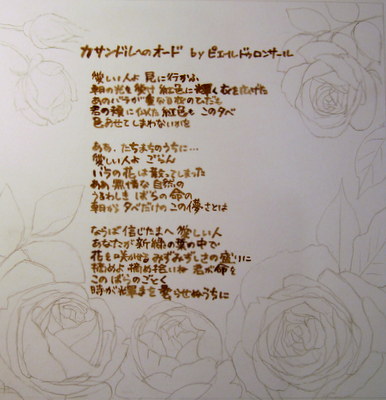 カサンドルへのオード by ピエールドゥロンサール
愛しい人よ 見に行かふ
朝の光を受け 紅色に輝く衣を広げた
あのバラが豊な日のひだと
君の頬に似た紅色も この夕べ
色あせてしまわないかを
ああ、たちまちのうちに…
愛しい人よ ごらん
バラの花は散ってしまった
ああ 無情な自然の
うるわしき ばらの命の
朝から 夕べだけの この儚さとは
ならば 信じたまへ 愛しい人
あなたが新緑の葉の中で
花を咲かせる みずみずしさの盛りに
摘めよ 摘め拾いね 君が命を
このばらのごとく
時が輝きを 曇らせぬうちに